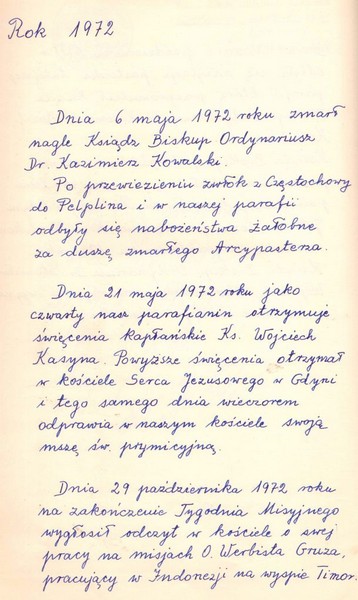 Rok 1972
Dnia 6 maja 1972 roku zmarł
nagle Ksiądz Biskup Ordynariusz
Dr. Kazimierz Kowalski.
Po przewiezieniu zwłok z Częstochowy
do Pelplina i w naszej parafii
odbyły się nabożeństwa żałobne
za duszę zmarłego Arcypasterza.
Dnia 21 maja 1972 roku jako
czwarty nasz parafianin otrzymuje
święcenia kapłańskie Ks. Wojciech
Kasyna. Powyższe święcenia otrzymał
w kościele Serca Jezusowego w Gdyni
i tego samego dnia wieczorem
odprawia w naszym kościele swoją
mszę św. prymicyjną.
Dnia 29 października 1972 roku
na zakończenie Tygodnia Misyjnego
wygłosił odczyt w kościele o swej
pracy na misjach O. Werbista Gruza,
pracujący w Indonezji na wyspie Timor.